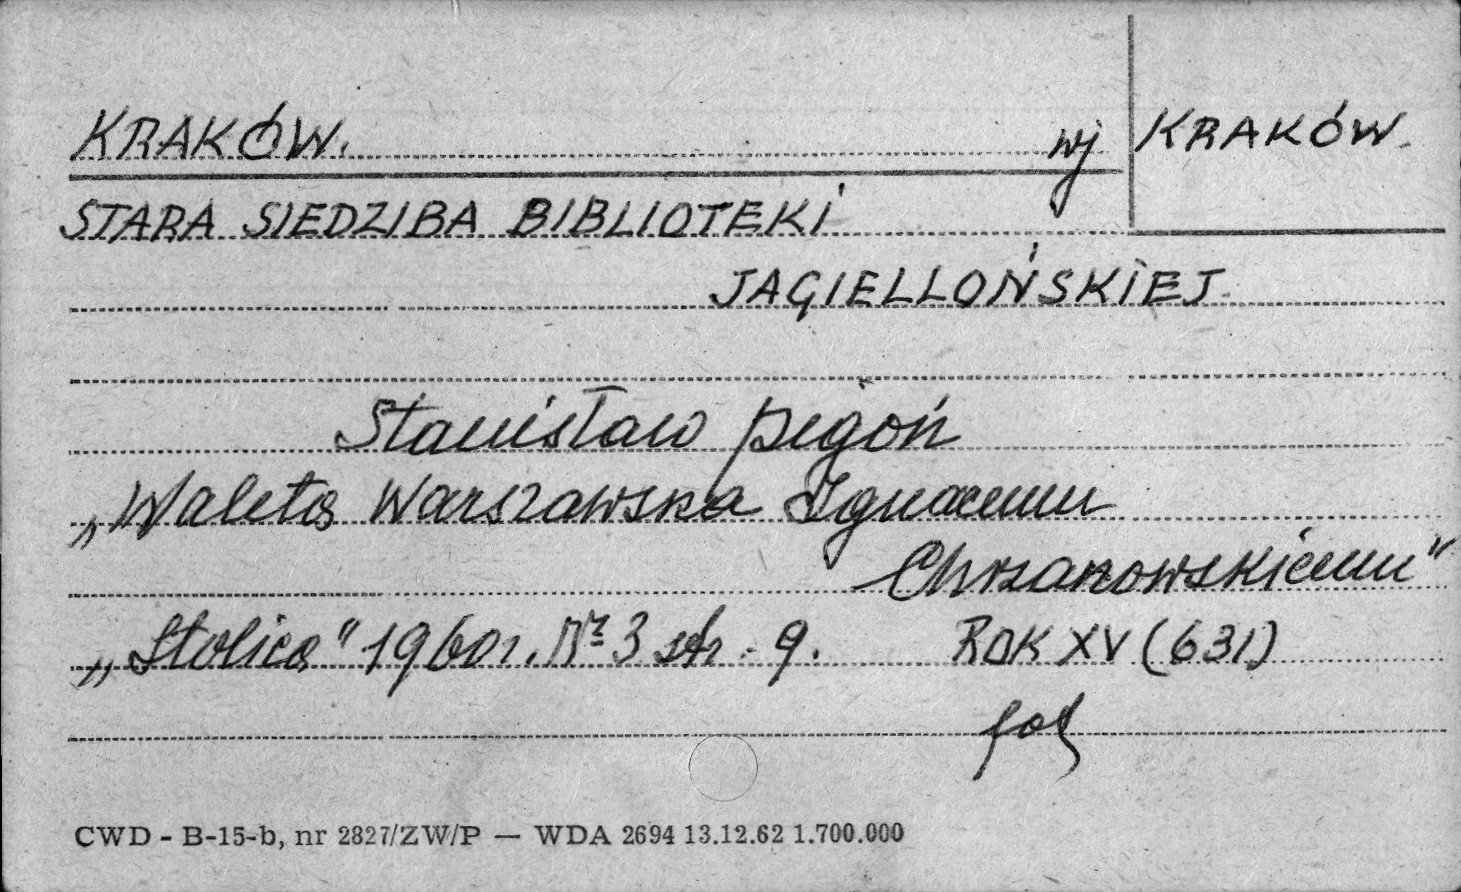 KRAKÓW. wj KRAKÓW.
STARA SIEDZIBA BIBLIOTEKI
JAGIELLOŃSKIEJ
Stanisław Pigoń
„Waleta Warszawska Ignacemu
Chrzanowskiemu"
„Stolica" 1960r. Nr 3 str. 9. ROK XV (631)
fot
CWD - B-15-b, nr 2827/ZW/P — WDA 2694 13.12.62 1.700.000